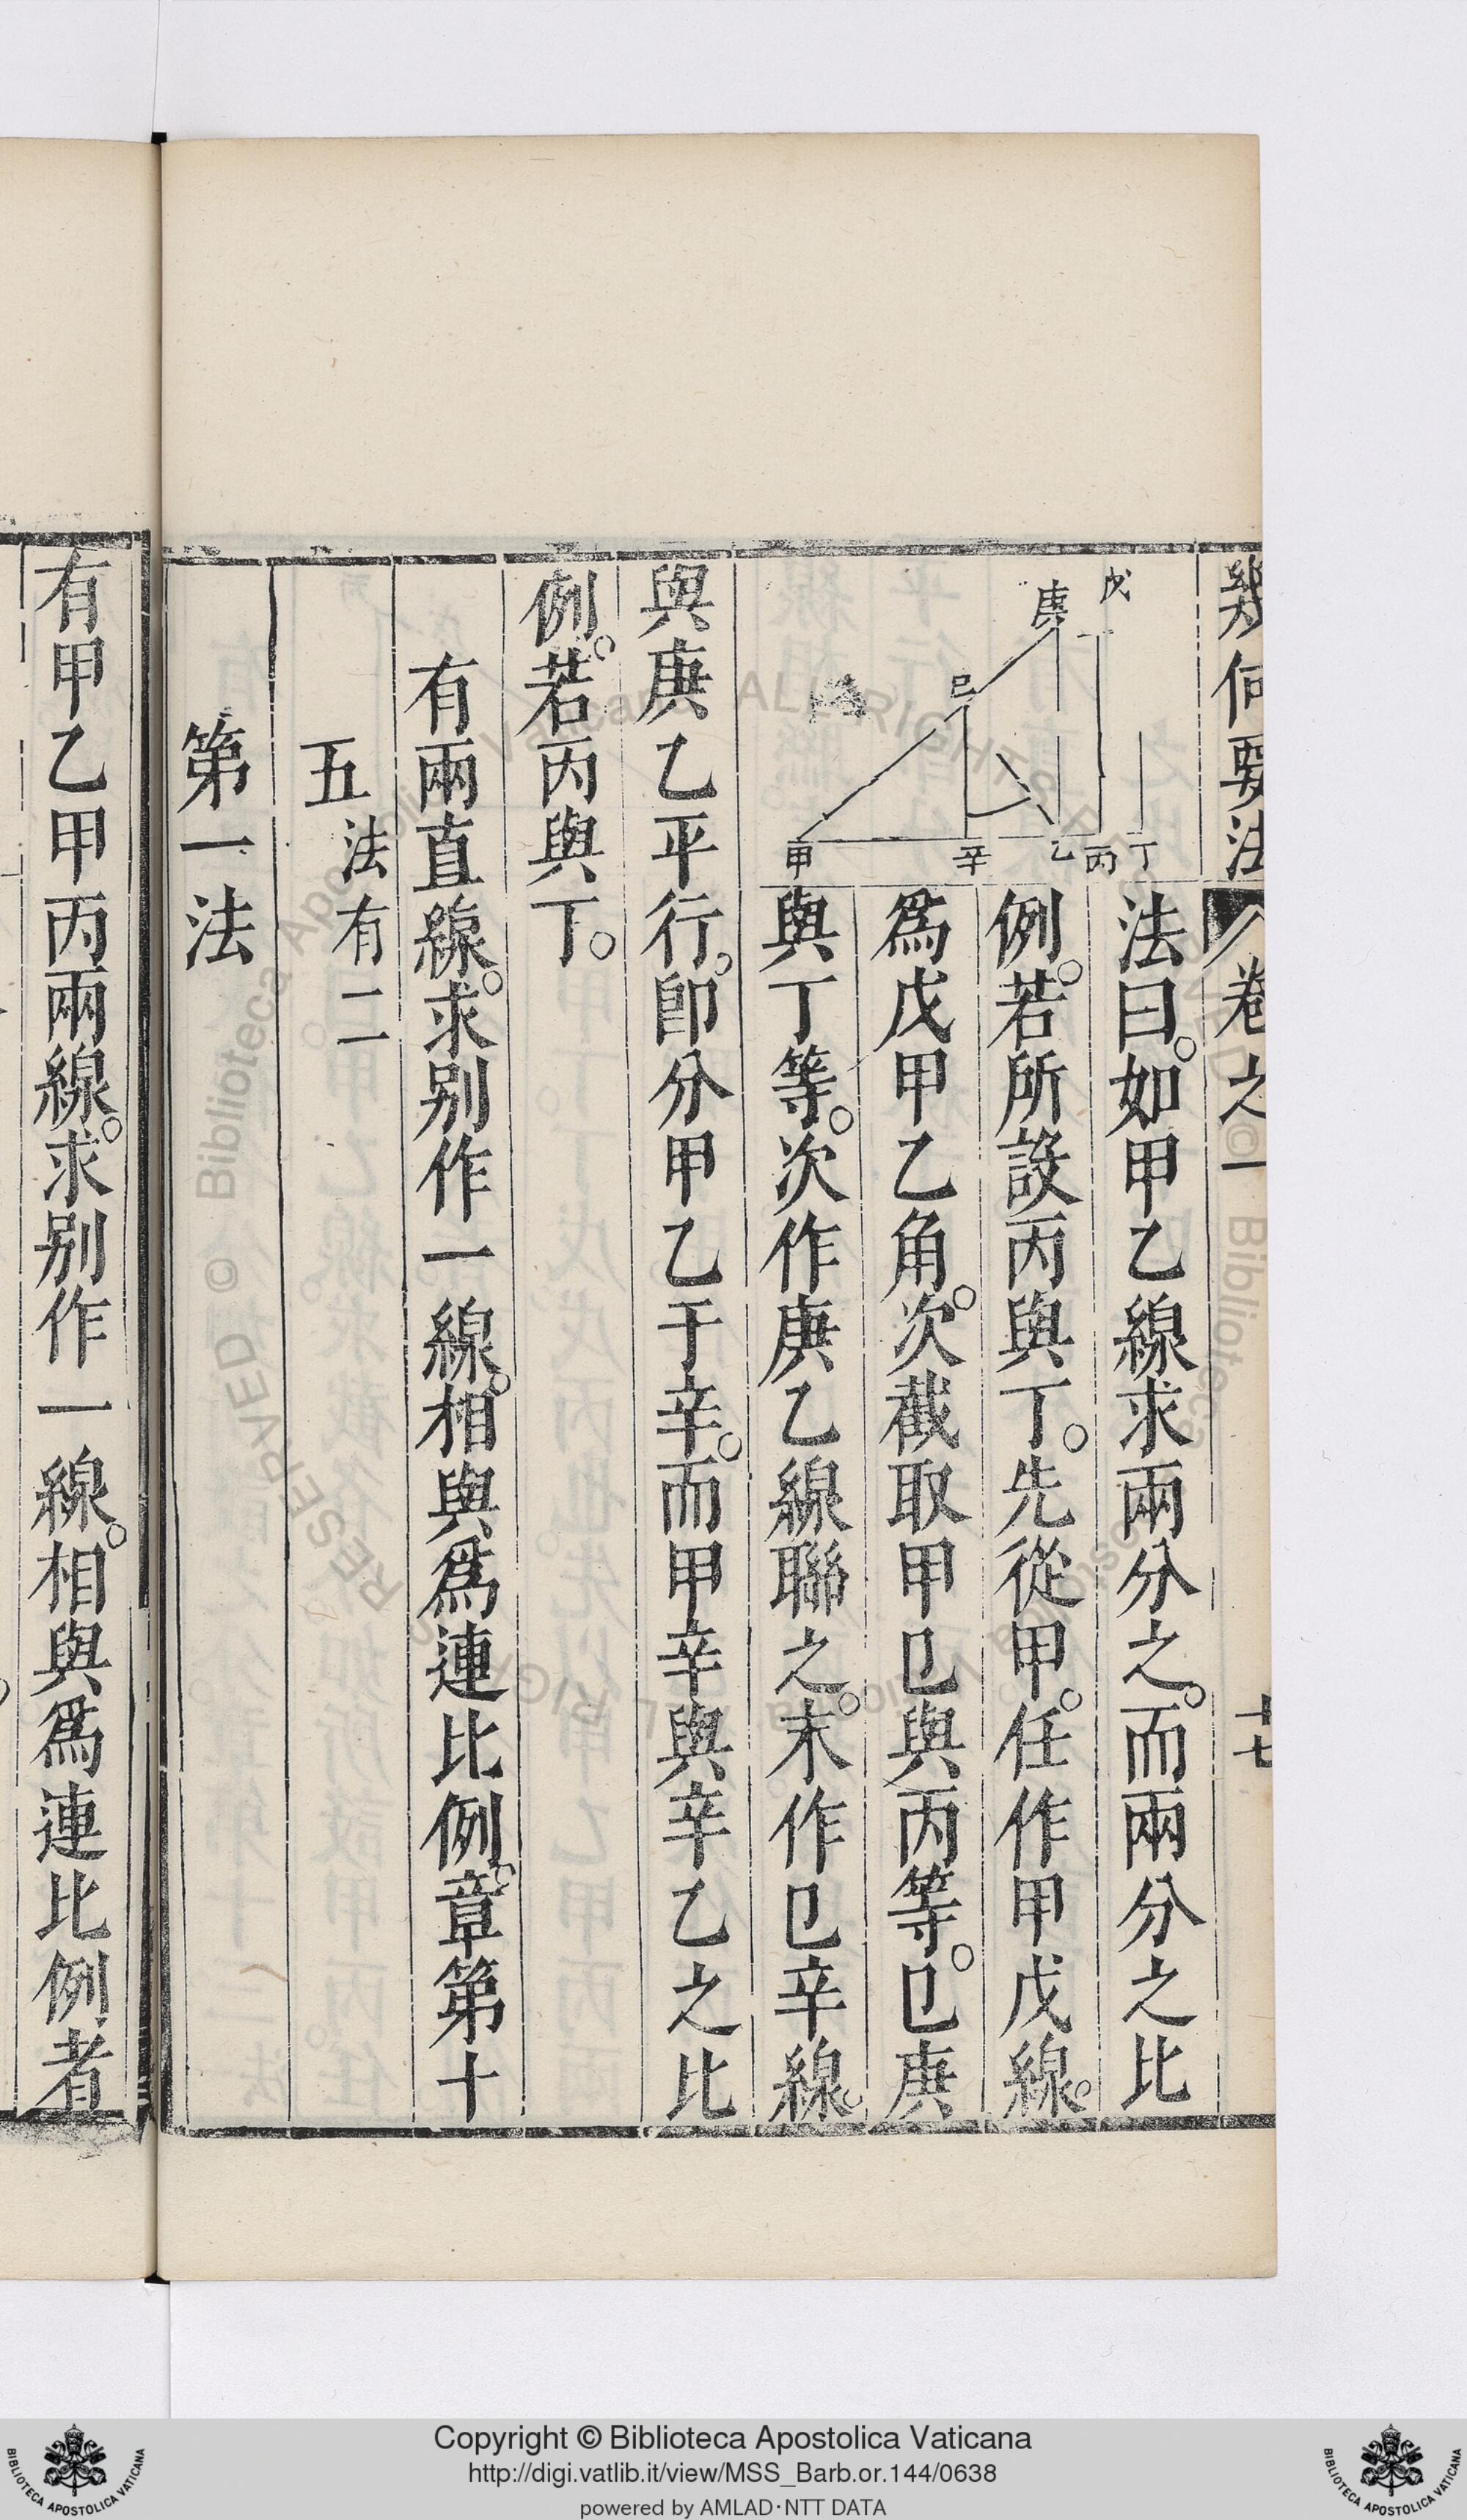 幾何要法 卷之一 十七
戊
庚
己
甲 辛 乙 丙 丁
法曰。如甲乙線求兩分之。而兩分之比
例。若所設丙與丁。先從甲。任作甲戊線。
爲戊甲乙角。次截取甲己與丙等。己庚
與丁等。次作庚乙線聯之。末作己辛線。
與庚乙平行。卽分甲乙于辛。而甲辛與辛乙之比
例。若丙與丁。
有兩直線。求別作一線。相與爲連比例。章第十
五 法有二
第一法
有甲乙甲丙兩線。求別作一線。相與爲連比例者
© Biblioteca Apostolica Vaticana ALL RIGHTS RESERVED
Copyright © Biblioteca Apostolica Vaticana
http://digi.vatlib.it/view/MSS_Barb.or.144/0638
powered by AMLAD·NTT DATA
BIBLIOTECA APOSTOLICA VATICANA
BIBLIOTECA APOSTOLICA VATICANA